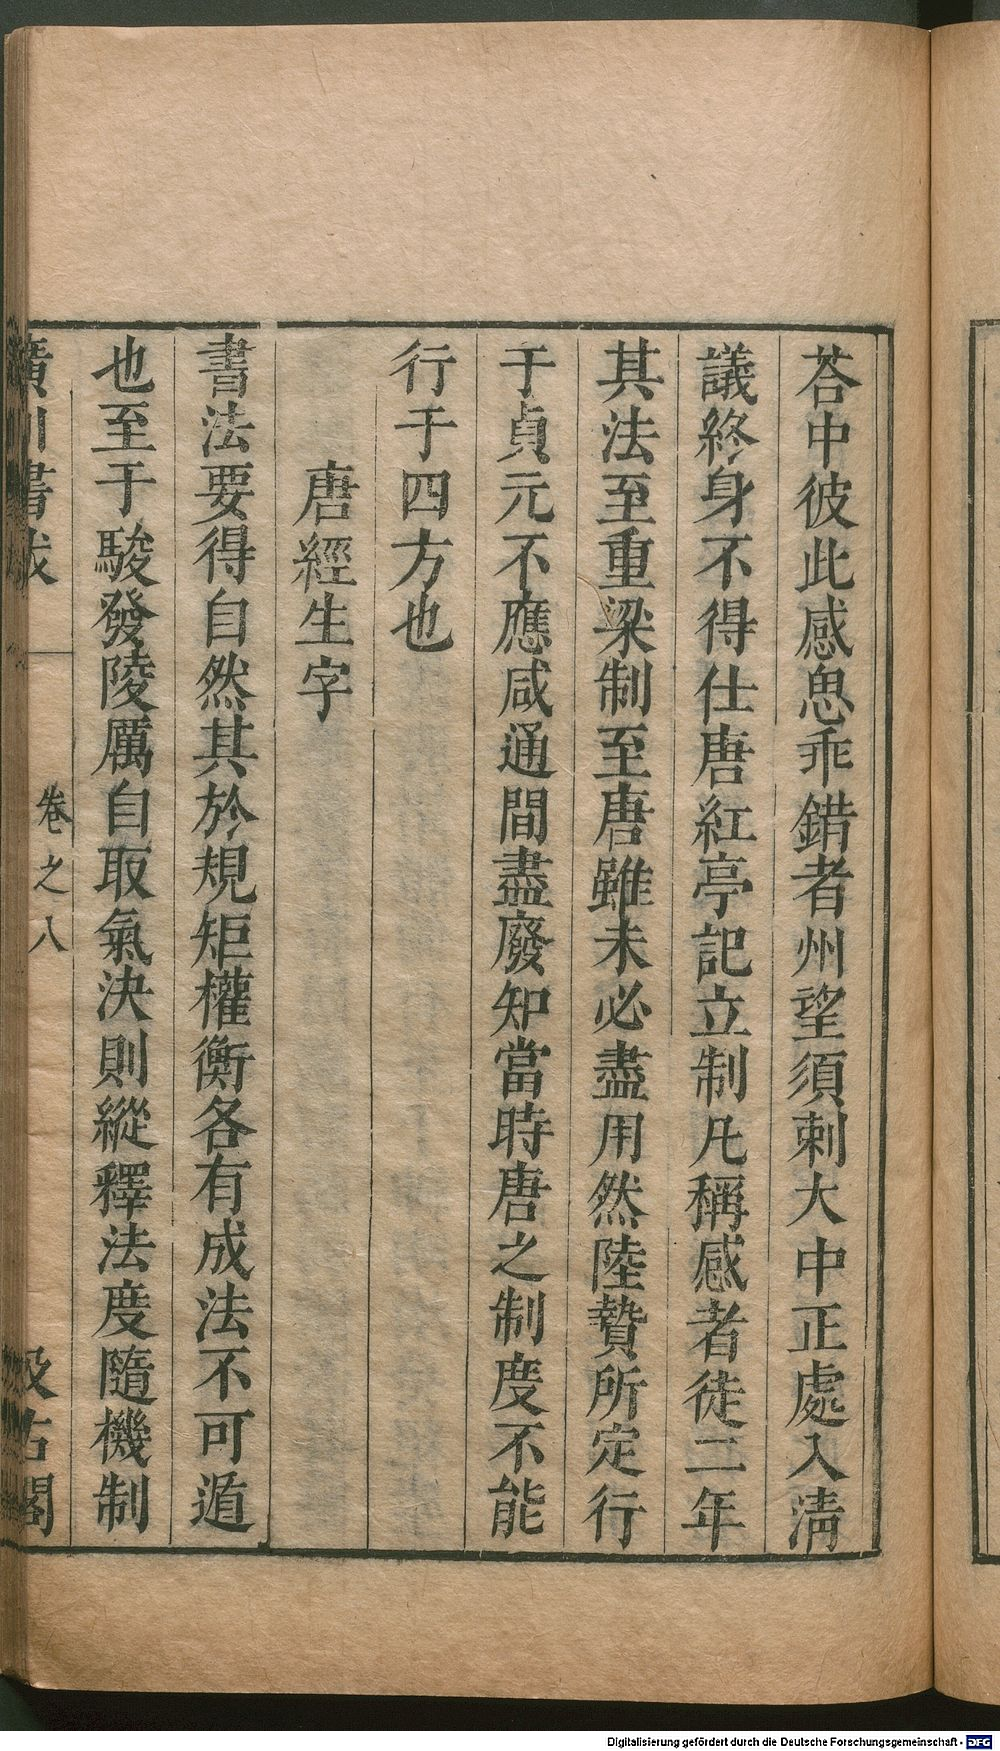 荅中彼此感思乖錯者州望須刺大中正處入清
議終身不得仕唐紅亭記立制凡稱感者徒二年
其法至重梁制至唐雖未必盡用然陸贄所定行
于貞元不應咸通間盡廢知當時唐之制度不能
行于四方也
唐經生字
書法要得自然其於規矩權衡各有成法不可遁
也至于駿發陵厲自取氣決則縱釋法度隨機制
廣川書跋
卷之八
汲古閣
Digitalisierung gefördert durch die Deutsche Forschungsgemeinschaft - DFG